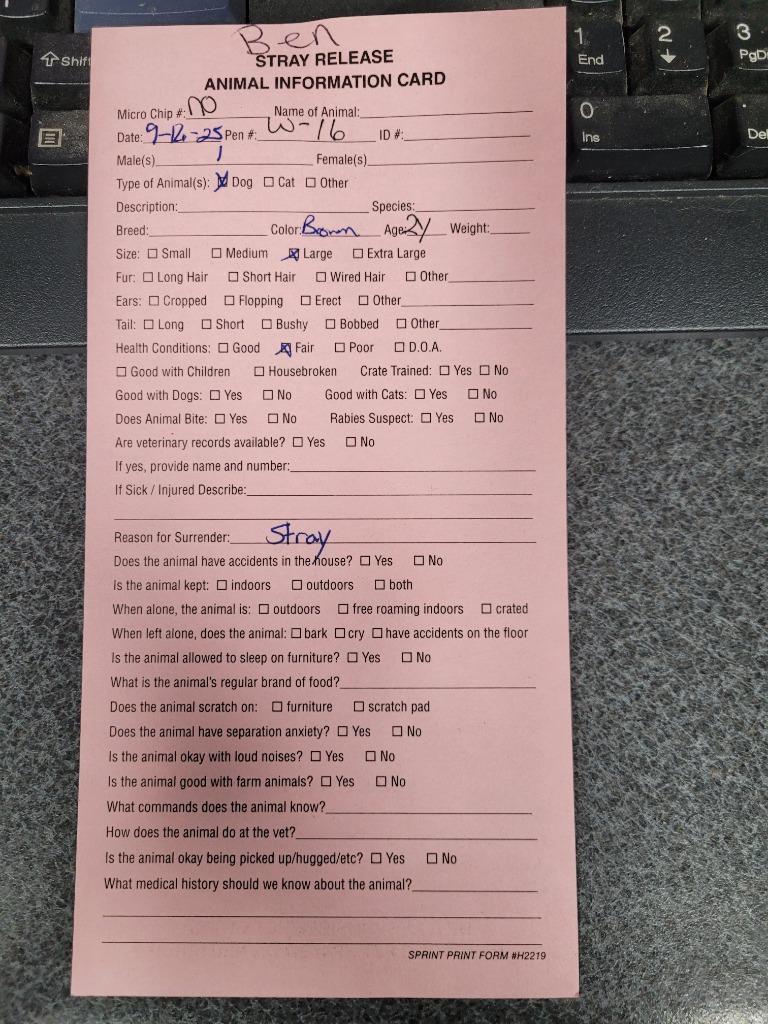 Shift
1
End
2
3
PgD
0
Ins
Del
Ben
STRAY RELEASE
ANIMAL INFORMATION CARD
Micro Chip #: NO Name of Animal:
Date: 9-12-25 Pen #: W-16 ID #:
Male(s) 1 Female(s)
Type of Animal(s): ☒ Dog ☐ Cat ☐ Other
Description: Species:
Breed: Color: Brown Age: 2Y Weight:
Size: ☐ Small ☐ Medium ☒ Large ☐ Extra Large
Fur: ☐ Long Hair ☐ Short Hair ☐ Wired Hair ☐ Other
Ears: ☐ Cropped ☐ Flopping ☐ Erect ☐ Other
Tail: ☐ Long ☐ Short ☐ Bushy ☐ Bobbed ☐ Other
Health Conditions: ☐ Good ☒ Fair ☐ Poor ☐ D.O.A.
☐ Good with Children ☐ Housebroken Crate Trained: ☐ Yes ☐ No
Good with Dogs: ☐ Yes ☐ No Good with Cats: ☐ Yes ☐ No
Does Animal Bite: ☐ Yes ☐ No Rabies Suspect: ☐ Yes ☐ No
Are veterinary records available? ☐ Yes ☐ No
If yes, provide name and number:
If Sick / Injured Describe:
Reason for Surrender: Stray
Does the animal have accidents in the house? ☐ Yes ☐ No
Is the animal kept: ☐ indoors ☐ outdoors ☐ both
When alone, the animal is: ☐ outdoors ☐ free roaming indoors ☐ crated
When left alone, does the animal: ☐ bark ☐ cry ☐ have accidents on the floor
Is the animal allowed to sleep on furniture? ☐ Yes ☐ No
What is the animal's regular brand of food?
Does the animal scratch on: ☐ furniture ☐ scratch pad
Does the animal have separation anxiety? ☐ Yes ☐ No
Is the animal okay with loud noises? ☐ Yes ☐ No
Is the animal good with farm animals? ☐ Yes ☐ No
What commands does the animal know?
How does the animal do at the vet?
Is the animal okay being picked up/hugged/etc? ☐ Yes ☐ No
What medical history should we know about the animal?
SPRINT PRINT FORM #H2219